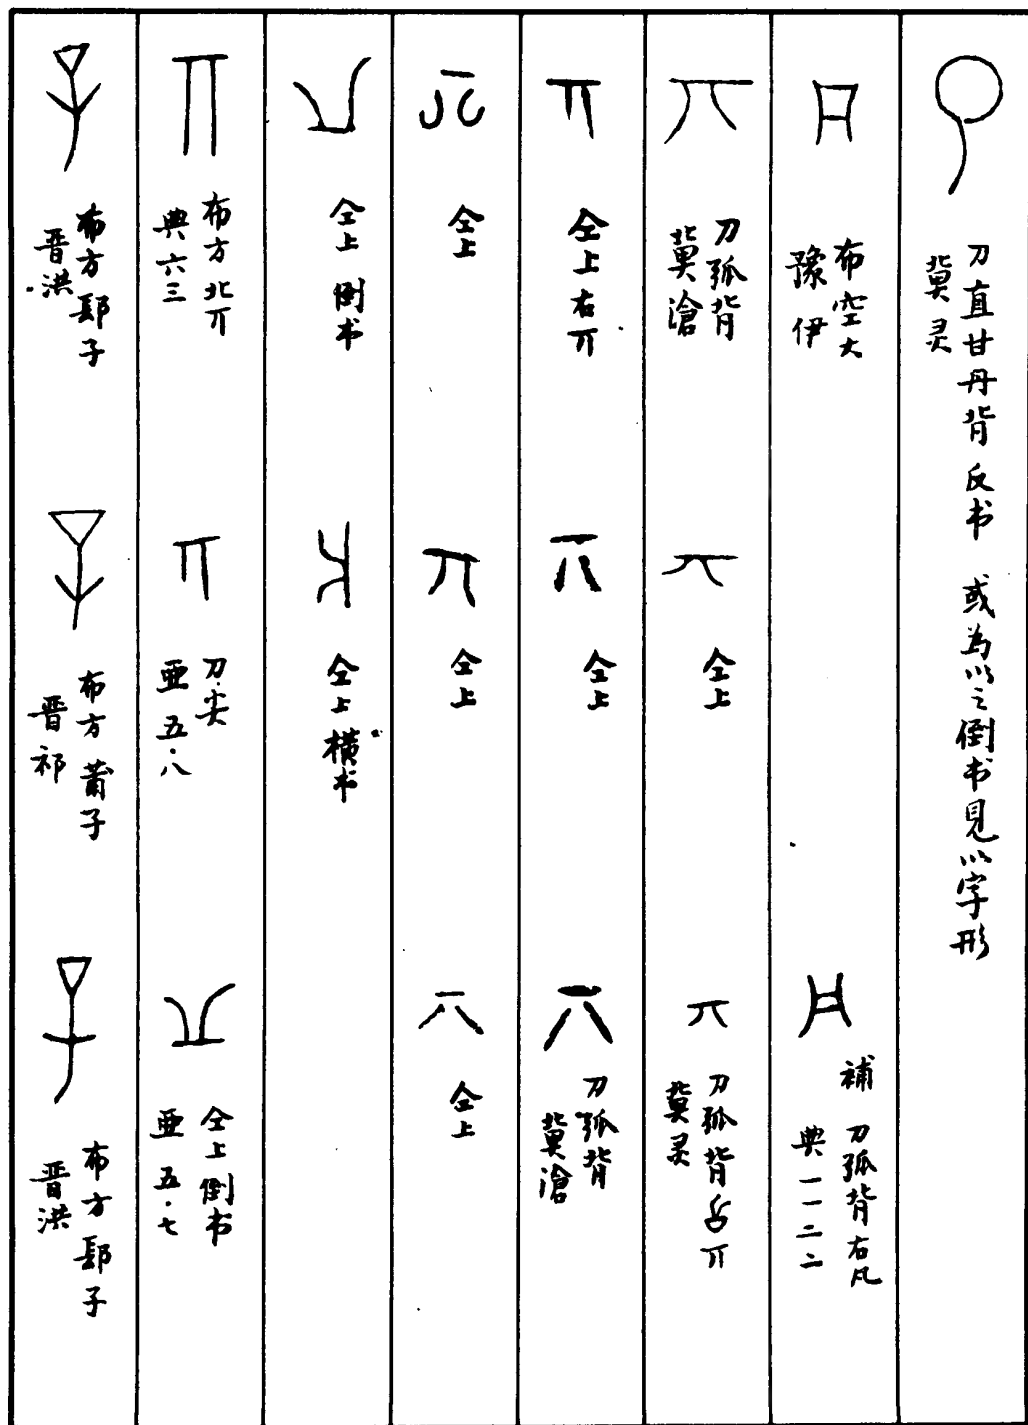 刀直甘丹背反书 或为以之倒书见以字形
冀灵
布空大
豫伊
補 刀弧背右凡
典一一二二
刀弧背
冀滄
仝上
刀弧背𠯑丌
冀灵
仝上右丌
仝上
刀弧背
冀滄
仝上
仝上
仝上
仝上倒书
仝上横书
布方北丌
典六三
刀·尖
亚五·八
仝上倒书
亚五·七
布方郚子
晋洪
布方莆子
晋祁
布方郚子
晋洪